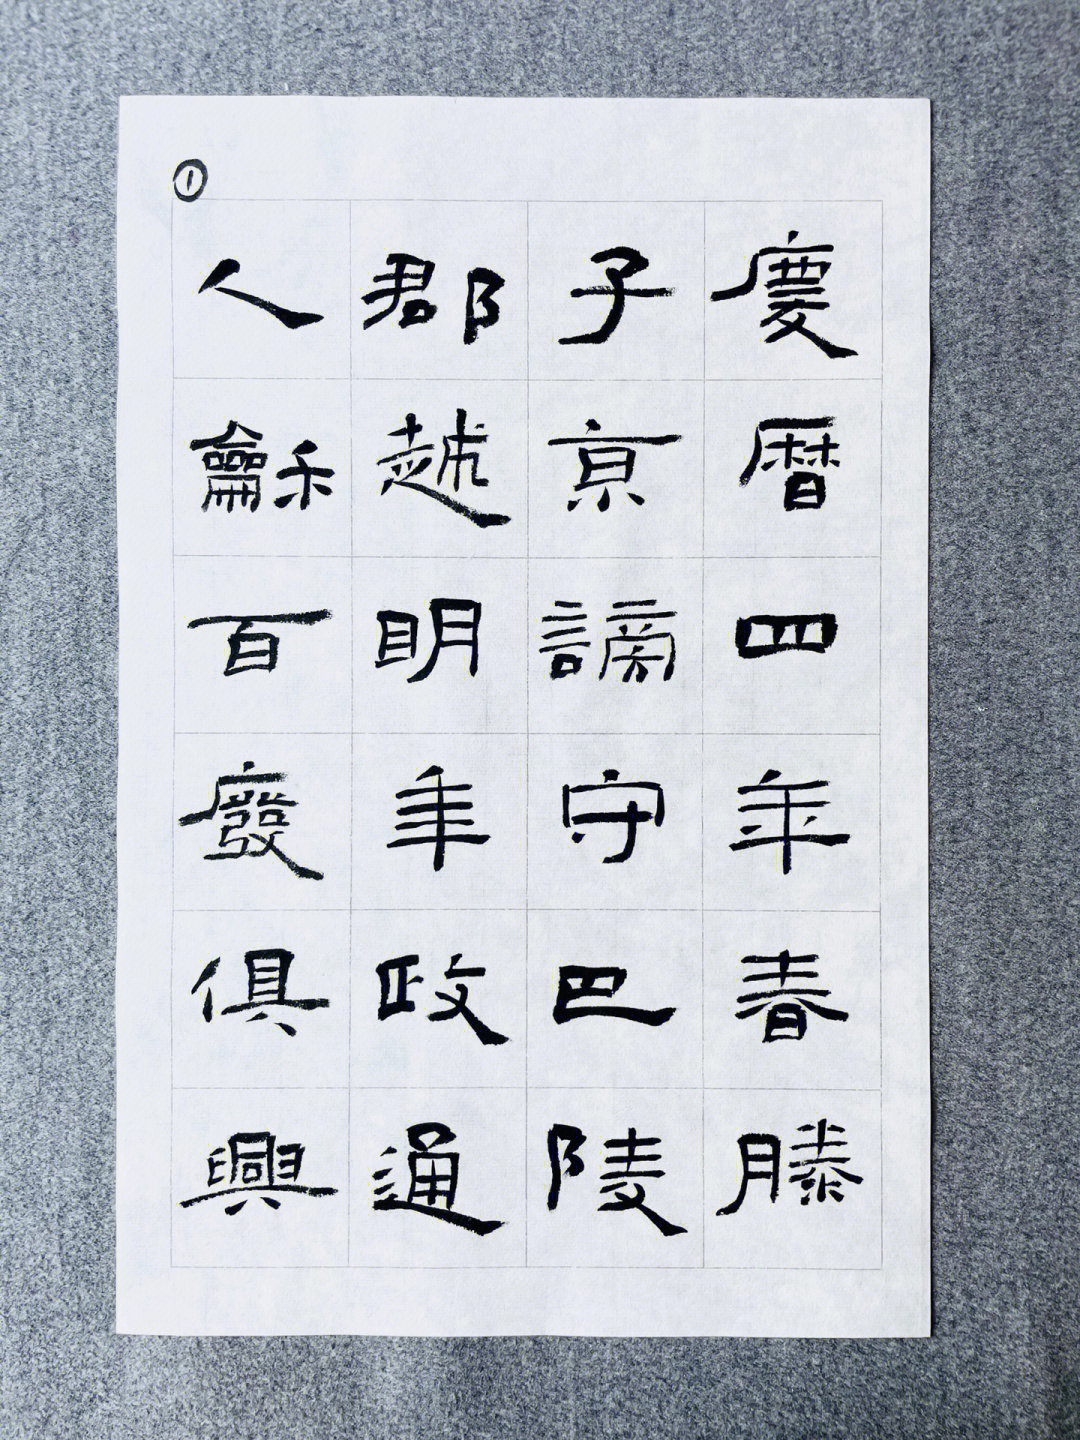 ①
慶曆四年春滕
子京謫守巴陵
郡越明年政通
人龢百廢俱興